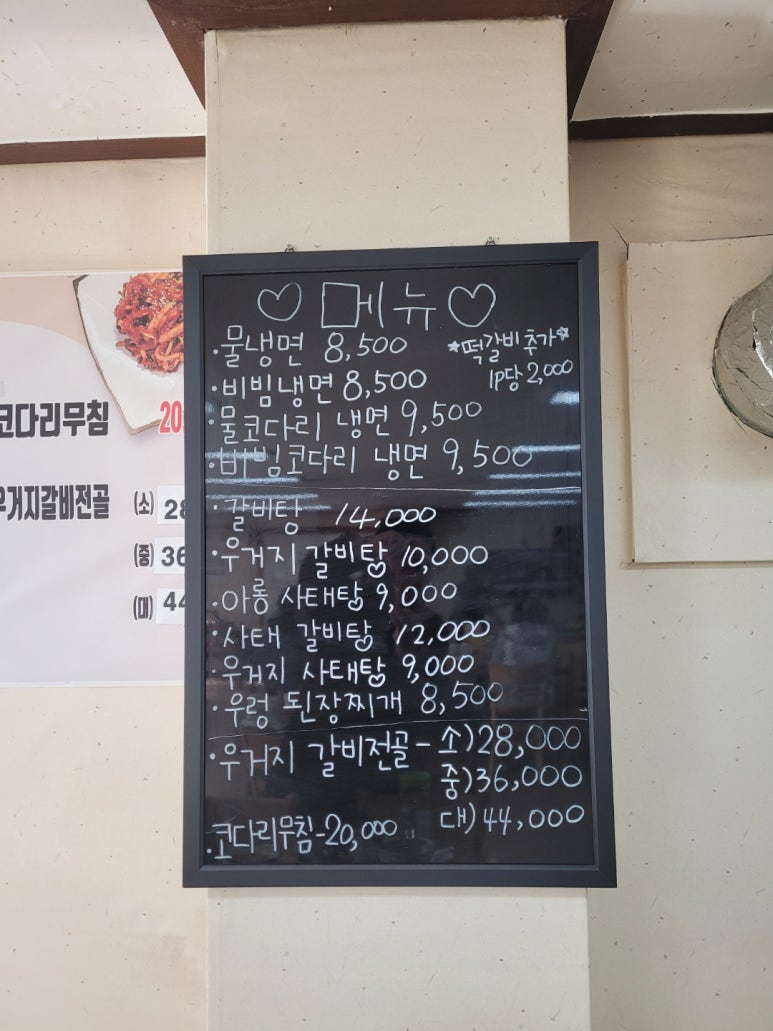 ♡ 메뉴 ♡
·물냉면 8,500
★떡갈비 추가★
1p당 2,000
·비빔냉면 8,500
·물코다리 냉면 9,500
·비빔코다리 냉면 9,500
·갈비탕 14,000
·우거지 갈비탕 10,000
·아롱 사태탕 9,000
·사태 갈비탕 12,000
·우거지 사태탕 9,000
·우렁 된장찌개 8,500
·우거지 갈비전골 - 소)28,000
중)36,000
대)44,000
·코다리무침-20,000
코다리무침 20,
우거지갈비전골 (소) 28
(중) 36
(대) 44